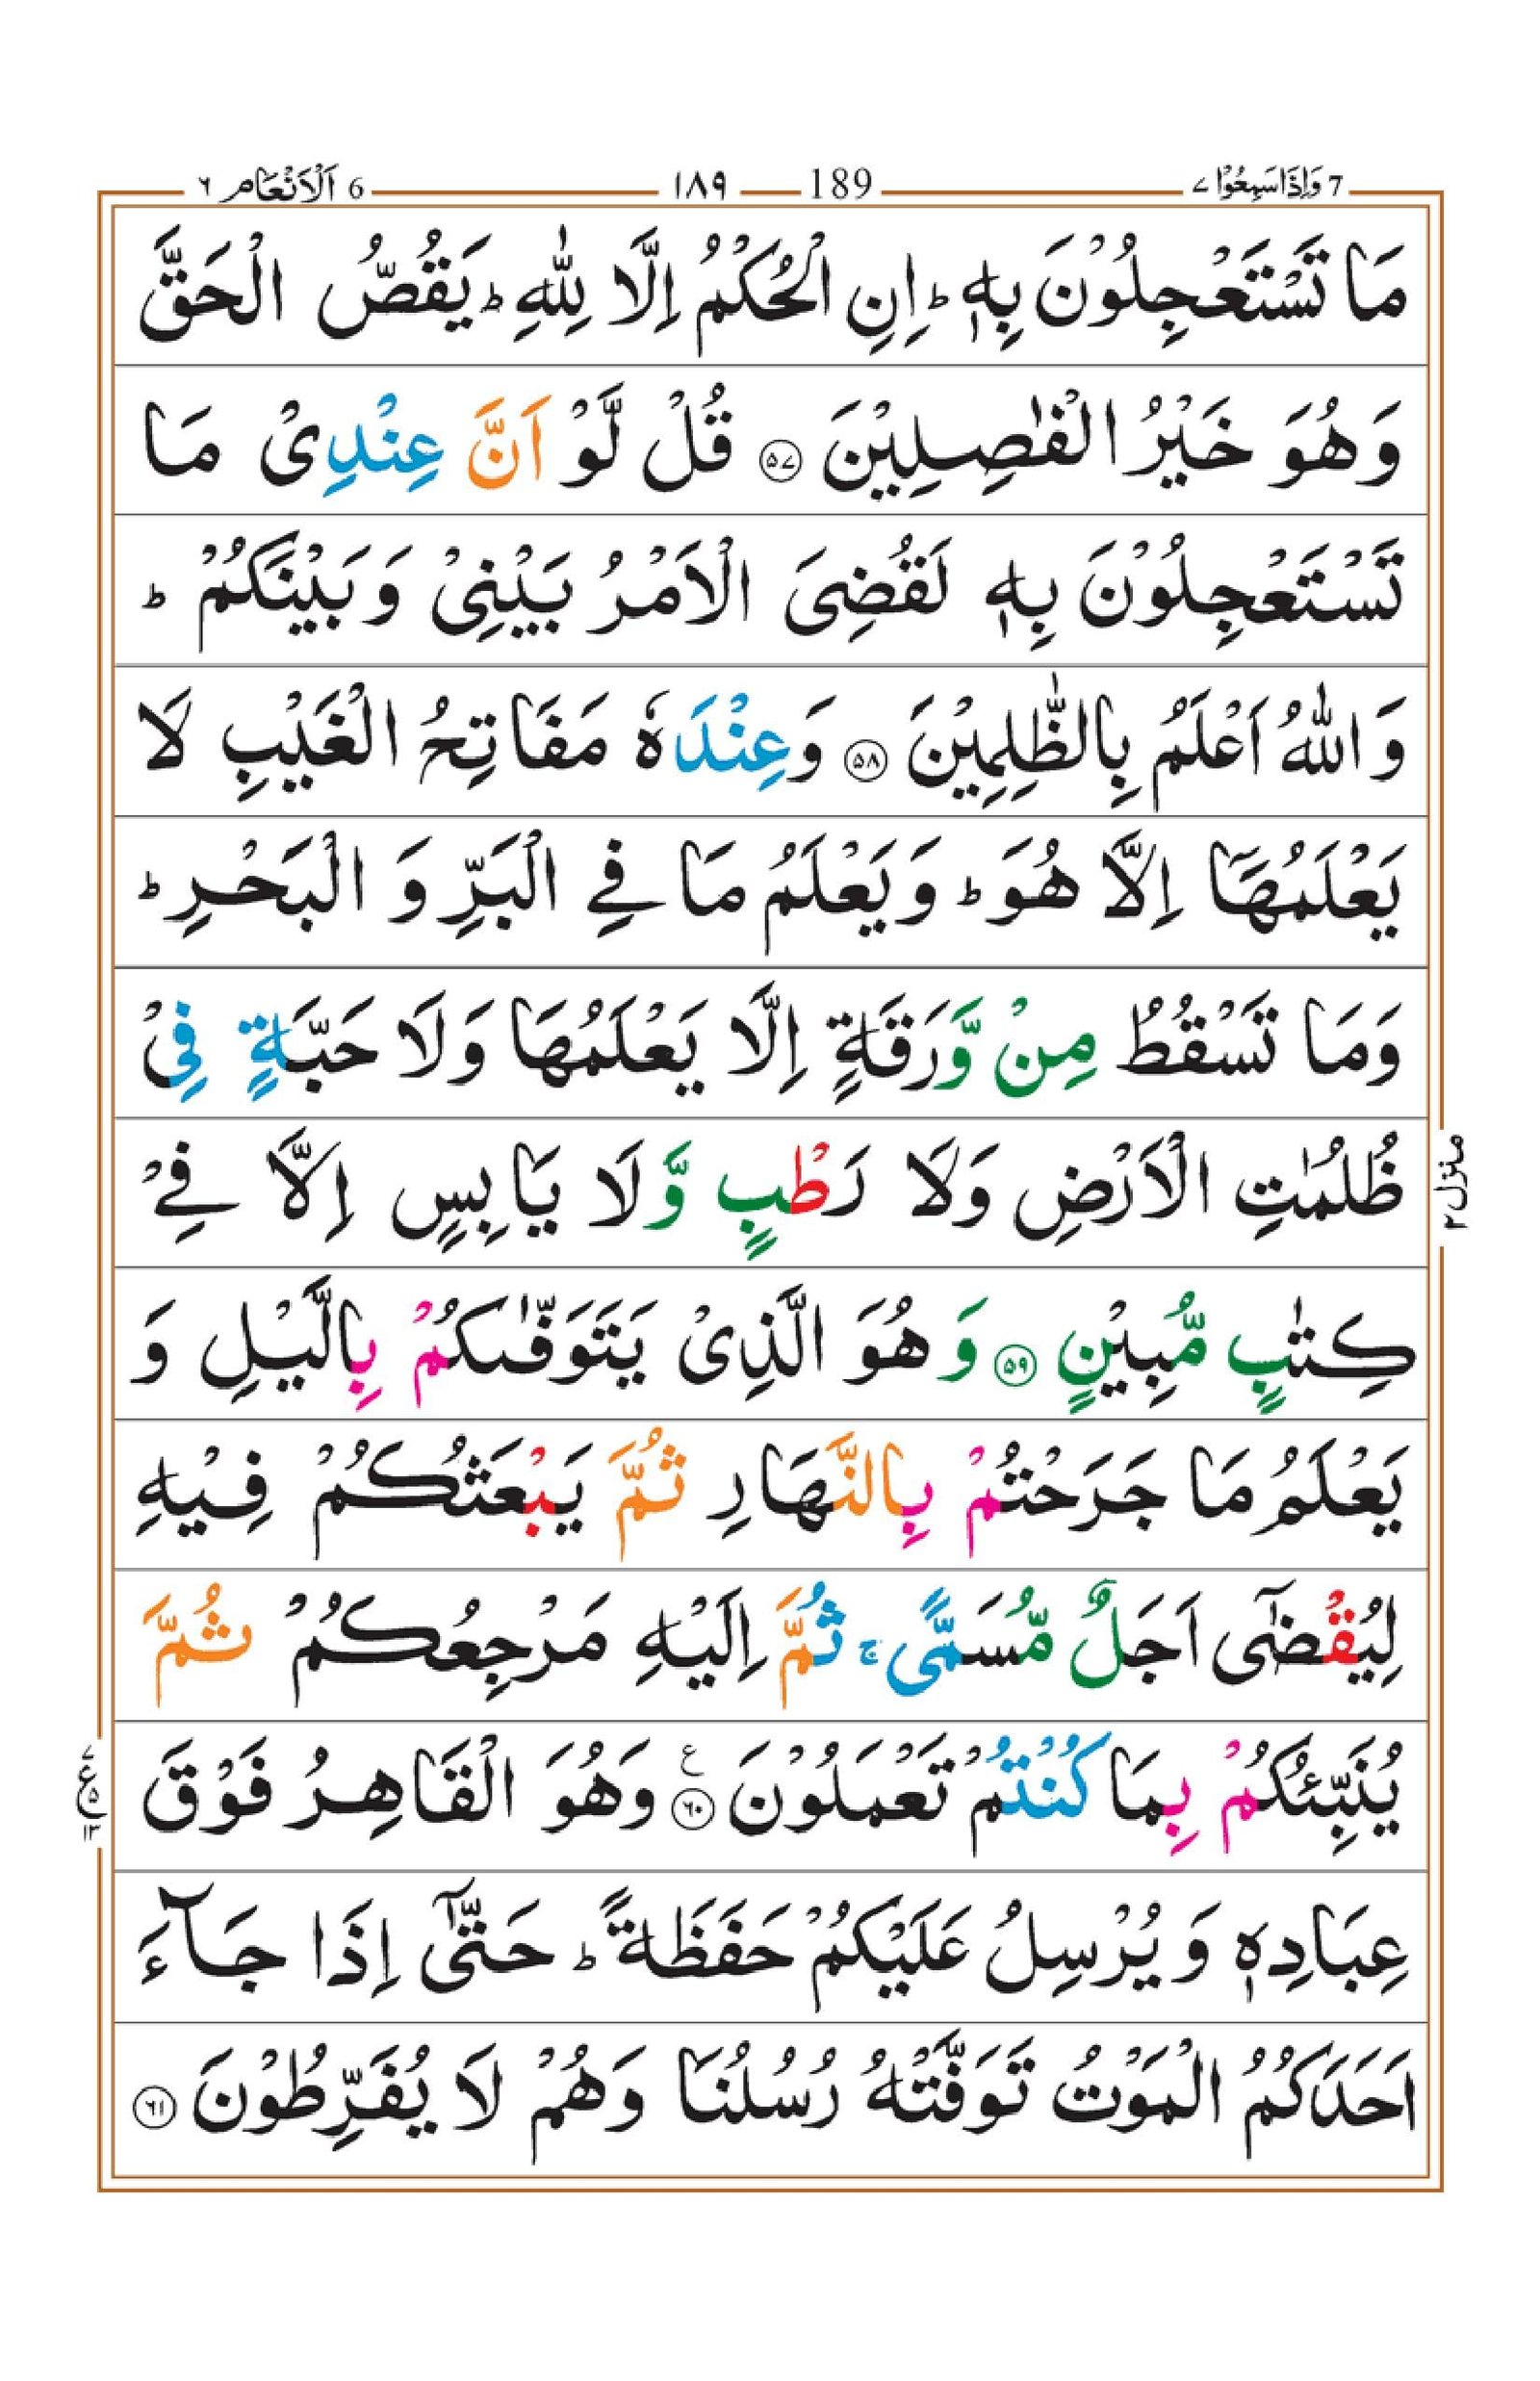 7 وَاِذَاسَمِعُوْا ٧ 189 ١٨٩ 6 اَلْاَنْعَام ٦
مَا تَسْتَعْجِلُوْنَ بِهٖ ؕ اِنِ الْحُكْمُ اِلَّا لِلّٰهِ ؕ يَقُصُّ الْحَقَّ
وَهُوَ خَيْرُ الْفٰصِلِيْنَ ۝۵۷ قُلْ لَّوْ اَنَّ عِنْدِىْ مَا
تَسْتَعْجِلُوْنَ بِهٖ لَقُضِىَ الْاَمْرُ بَيْنِىْ وَبَيْنَكُمْ ؕ
وَاللّٰهُ اَعْلَمُ بِالظّٰلِمِيْنَ ۝۵۸ وَعِنْدَهٗ مَفَاتِحُ الْغَيْبِ لَا
يَعْلَمُهَاۤ اِلَّا هُوَ ؕ وَيَعْلَمُ مَا فِے الْبَرِّ وَ الْبَحْرِ ؕ
وَمَا تَسْقُطُ مِنْ وَّرَقَةٍ اِلَّا يَعْلَمُهَا وَلَا حَبَّةٍ فِىْ
ظُلُمٰتِ الْاَرْضِ وَلَا رَطْبٍ وَّلَا يَابِسٍ اِلَّا فِےْ
كِتٰبٍ مُّبِيْنٍ ۝۵۹ وَهُوَ الَّذِىْ يَتَوَفّٰىكُمْ بِالَّيْلِ وَ
يَعْلَمُ مَا جَرَحْتُمْ بِالنَّهَارِ ثُمَّ يَبْعَثُكُمْ فِيْهِ
لِيُقْضٰٓى اَجَلٌ مُّسَمًّى ۚ ثُمَّ اِلَيْهِ مَرْجِعُكُمْ ثُمَّ
يُنَبِّئُكُمْ بِمَا كُنْتُمْ تَعْمَلُوْنَ ۝۶۰ ع وَهُوَ الْقَاهِرُ فَوْقَ
عِبَادِهٖ وَ يُرْسِلُ عَلَيْكُمْ حَفَظَةً ؕ حَتّٰٓى اِذَا جَآءَ
اَحَدَكُمُ الْمَوْتُ تَوَفَّتْهُ رُسُلُنَا وَهُمْ لَا يُفَرِّطُوْنَ ۝۶۱
منزل ٢
٧ ع ۵ ١٣